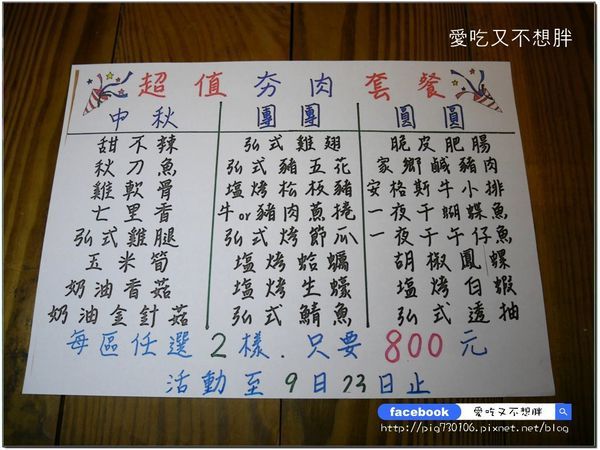 愛吃又不想胖
超值夯肉套餐
中秋 團團 圓圓
甜不辣 弘式雞翅 脆皮肥腸
秋刀魚 弘式豬五花 家鄉鹹豬肉
雞軟骨 塩烤松板豬 安格斯牛小排
七里香 牛or豬肉蔥捲 一夜干蝴蝶魚
弘式雞腿 弘式烤節瓜 一夜干午仔魚
玉米筍 塩烤蛤蠣 胡椒鳳螺
奶油香菇 塩烤生蠔 塩烤白蝦
奶油金針菇 弘式鯖魚 弘式透抽
每區任選2樣.只要800元
活動至9月23日止
facebook 愛吃又不想胖
http://pig730106.pixnet.net/blog